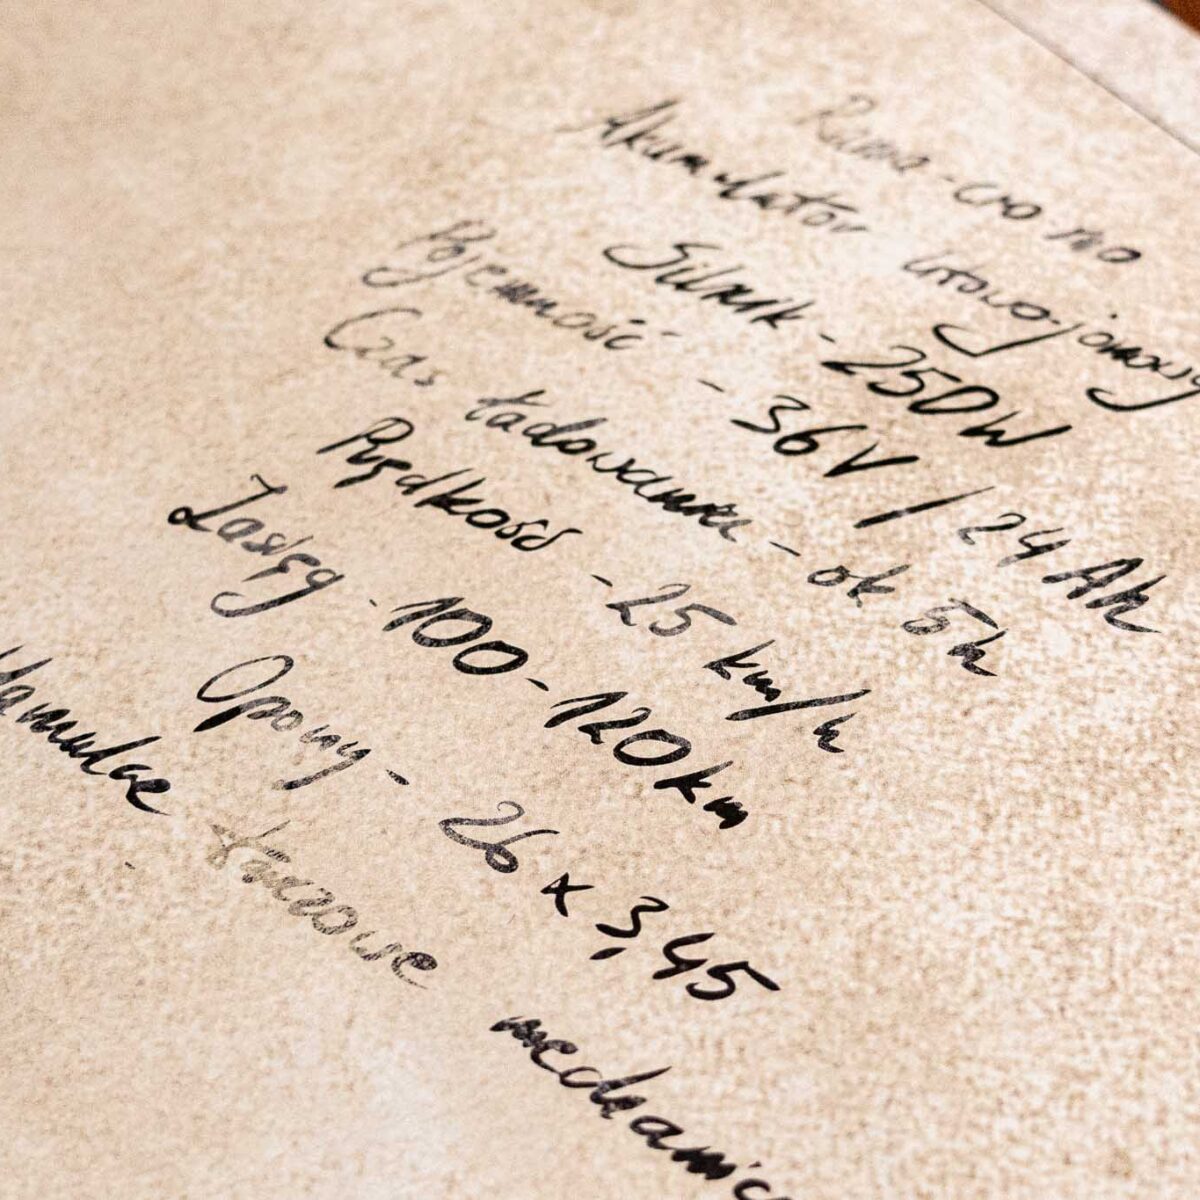 Rama - cro mo
Akumulator litowo-jonowy
Silnik - 250W
Pojemność - 36V / 24 Ah
Czas ładowania - ok 5h
Prędkość - 25 km/h
Zasięg - 100 - 120 km
Opony - 26 x 3,45
Hamulce tarczowe mechanic